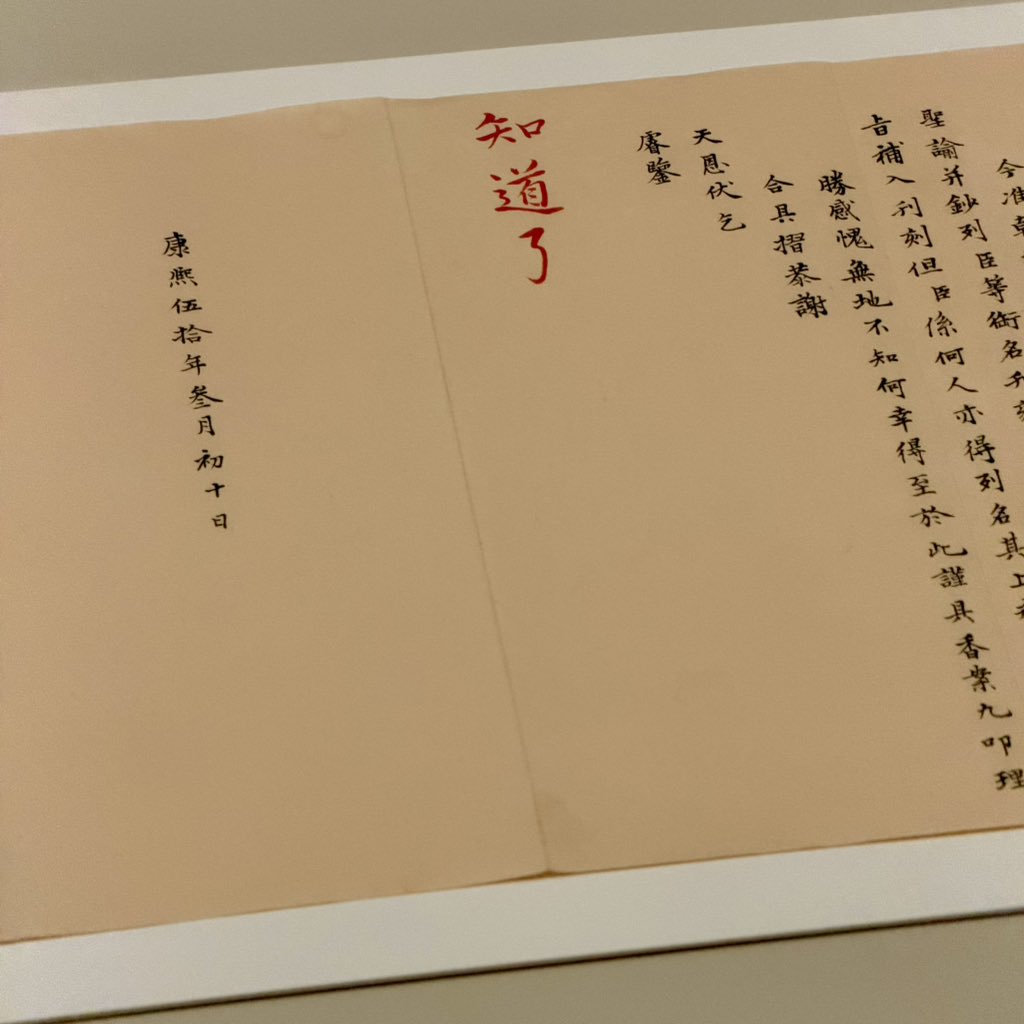 今准
聖諭并鈔列臣等銜名
旨補入刊刻但臣係何人亦得列名其上
勝感愧無地不知何幸得至於此謹具香案九叩理
合具摺恭謝
天恩伏乞
睿鑒
知道了
康熙伍拾年叁月初十日